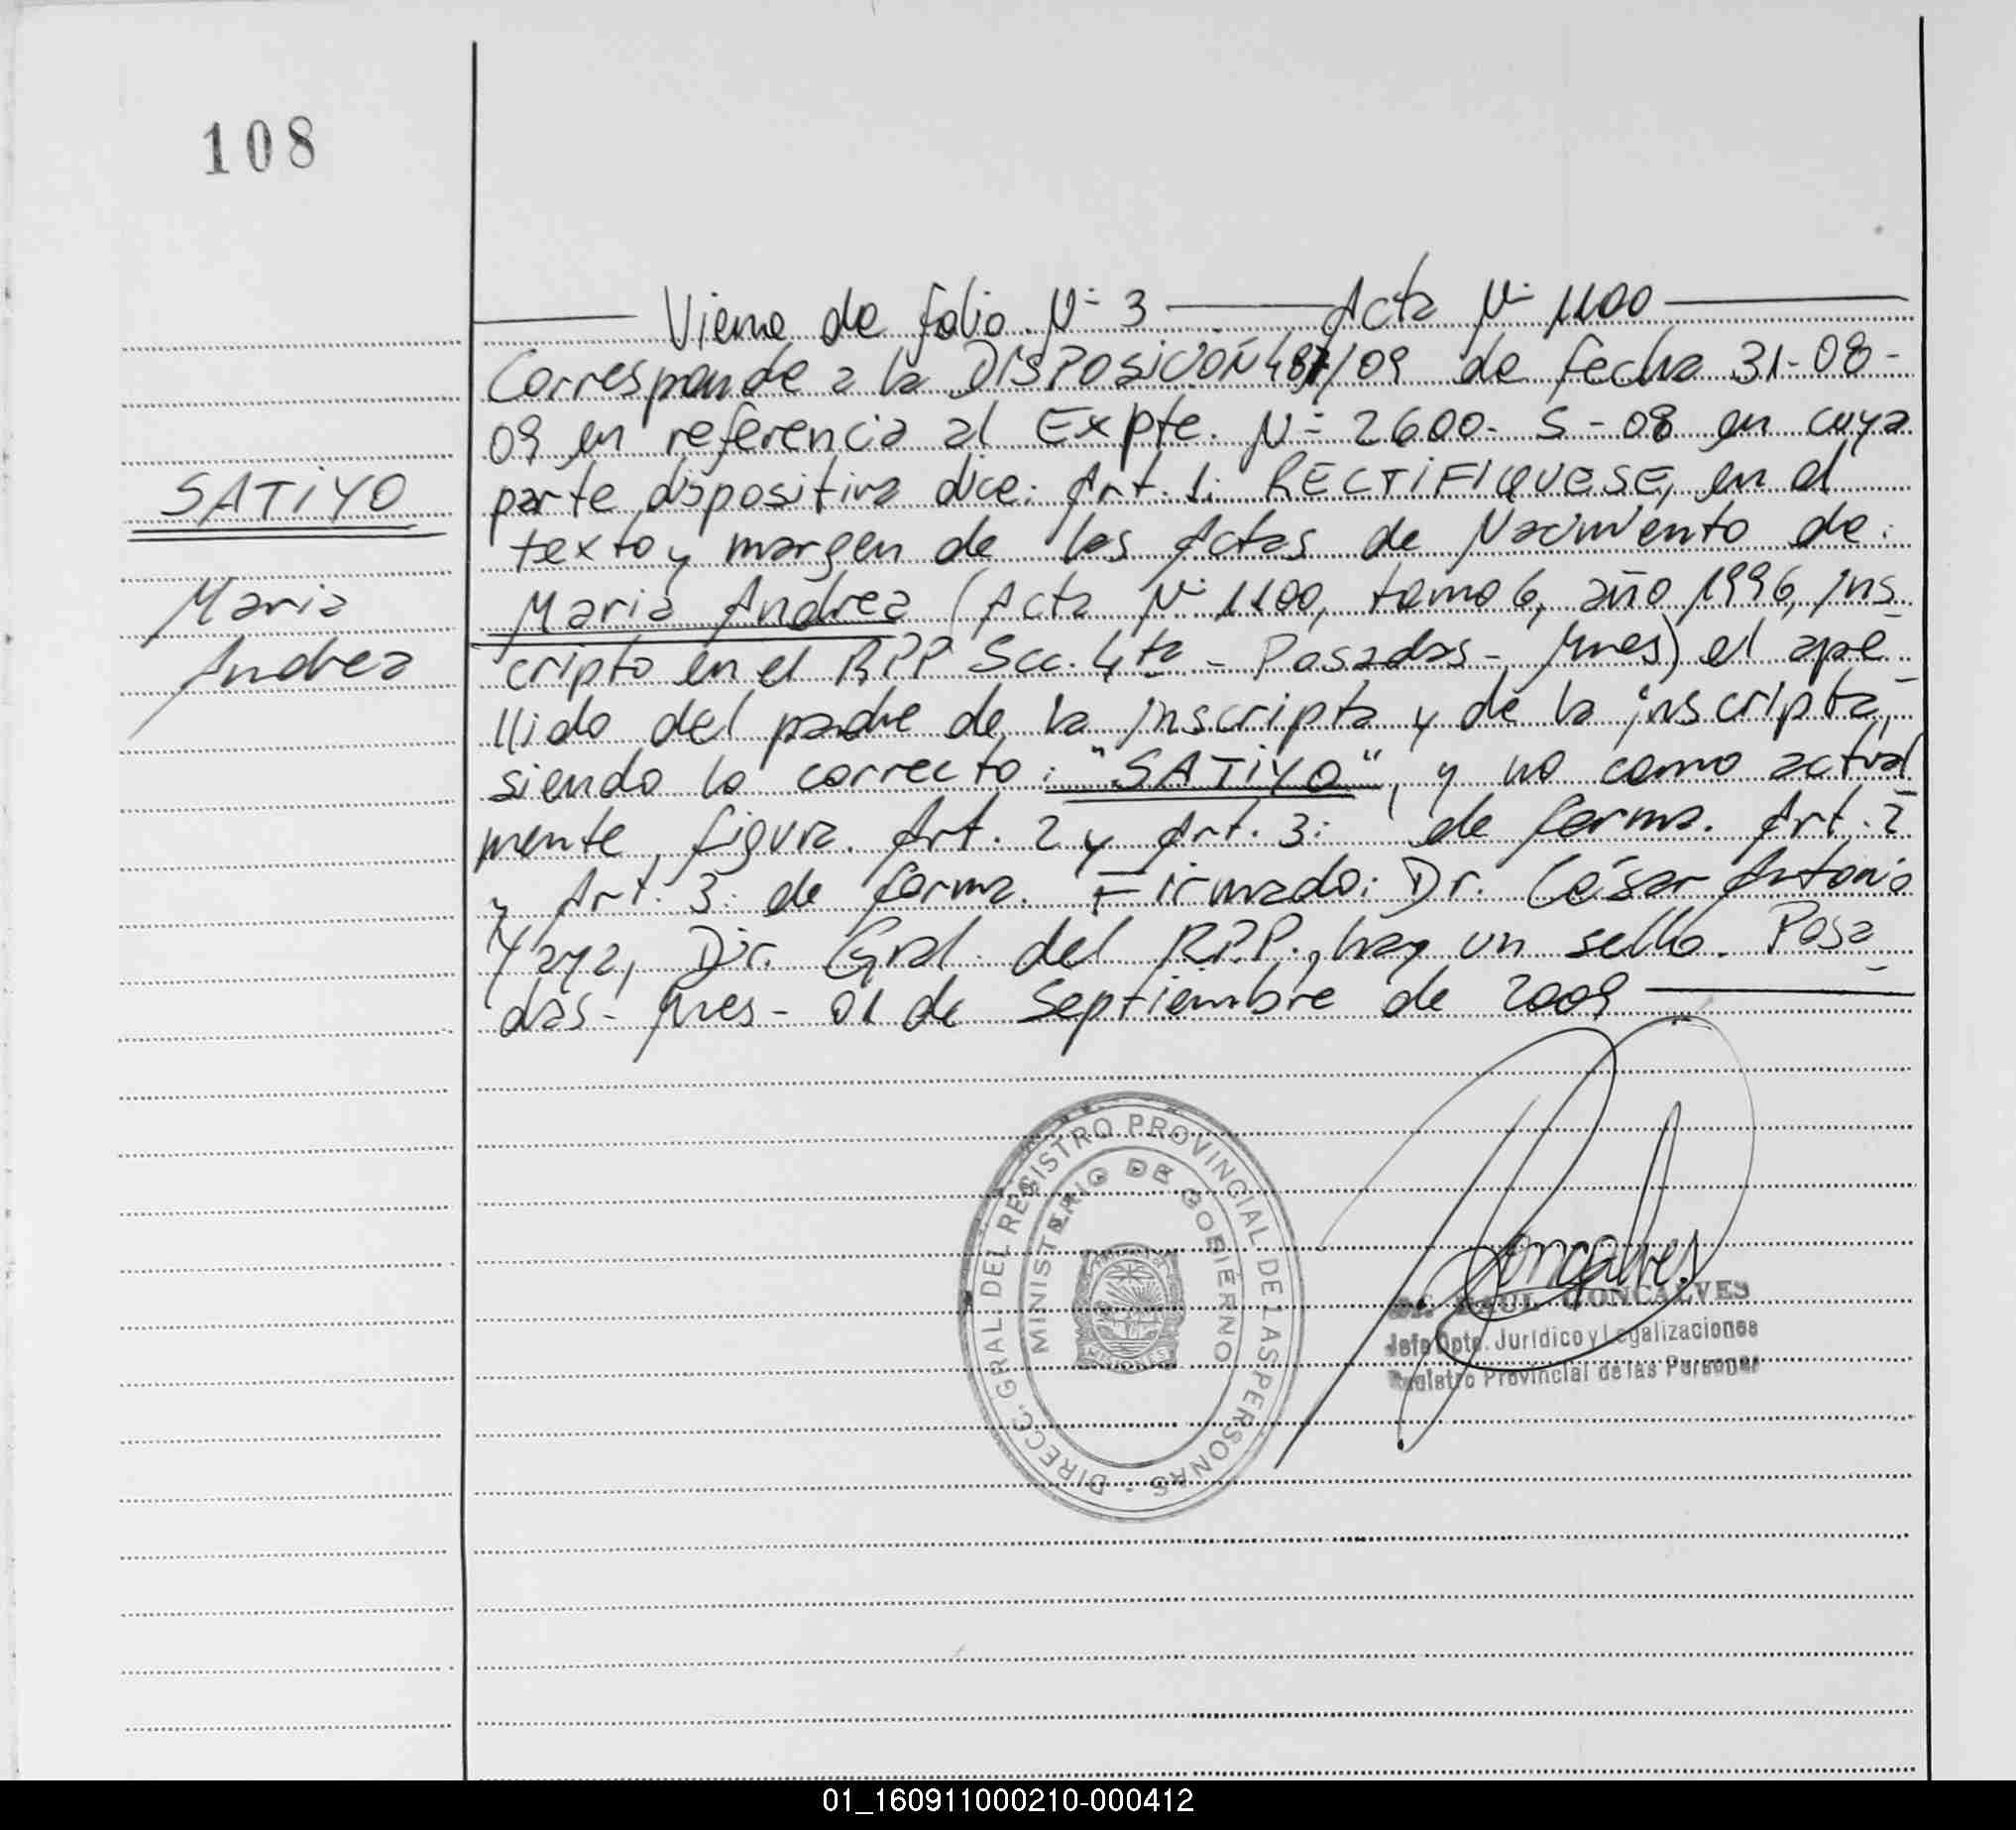 108
Viene de folio Nº 3 Acta Nº 1100
Corresponde a la DISPOSICIÓN 487/09 de fecha 31-08-
09 en referencia al Expte. Nº 2600- S-08 en cuya
parte dispositiva dice: Art. 1: RECTIFIQUESE, en el
texto y margen de las Actas de Nacimiento de:
Maria Andrea (Acta Nº 1100, tomo 6, año 1996, ins
cripto en el RPP Scc. 4ta - Posadas - Mnes) el ape_
llido del padre de la inscripta y de la inscripta,
siendo lo correcto: "SATIYO", y no como actual
mente, figura. Art. 2 y Art. 3: de forma. Art. 2
y Art. 3: de forma. Firmado: Dr. César Antonio
Yaya, Dir. Gral. del R.P.P., hay un sello. Posa_
das - Mnes - 01 de Septiembre de 2009
SATIYO
Maria
Andrea
DIRECC. GRAL. DEL REGISTRO PROVINCIAL DE LAS PERSONAS
MINISTERIO DE GOBIERNO
MISIONES
Goncalves
RAUL GONCALVES
Jefe Dpto. Jurídico y Legalizaciones
Registro Provincial de las Personas
01_160911000210-000412